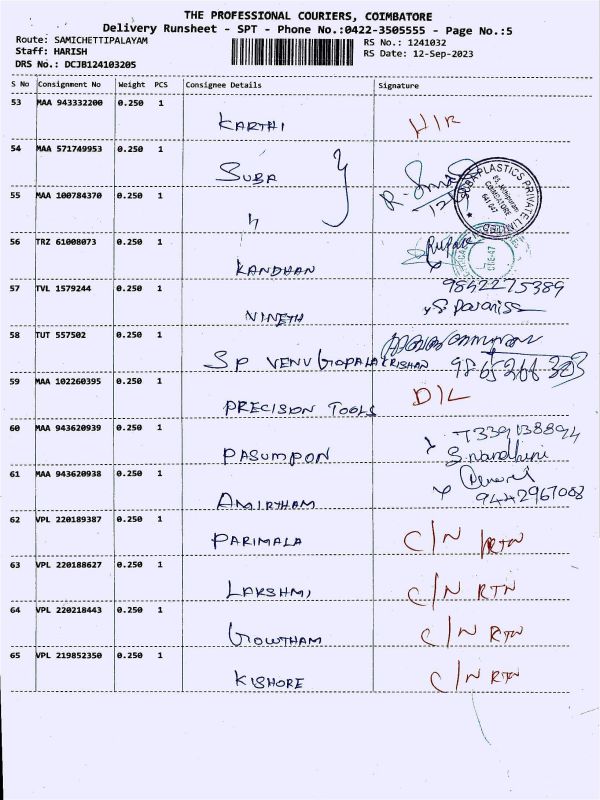 THE PROFESSIONAL COURIERS, COIMBATORE
Delivery Runsheet - SPT - Phone No.:0422-3505555 - Page No.:5
Route: SAMICHETTIPALAYAM RS No.: 1241032
Staff: HARISH RS Date: 12-Sep-2023
DRS No.: DCJB124103205
S No Consignment No Weight PCS Consignee Details Signature
53 MAA 943332200 0.250 1
KARTHI
54 MAA 571749953 0.250 1
SUBA
SUBA PLASTICS PRIVATE LIMITED
COIMBATORE
641 047
55 MAA 100784370 0.250 1
56 TRZ 61008073 0.250 1
KANDHAN
57 TVL 1579244 0.250 1 9842275389
VINETH
58 TUT 557502 0.250 1
SP VENUGOPALAKRISHAN
59 MAA 102260395 0.250 1 D/L
PRECISION TOOLS
60 MAA 943620939 0.250 1
PASUMPON S. nandhini
61 MAA 943620938 0.250 1
AMIRTHAM 9442967008
62 VPL 220189387 0.250 1
PARIMALA C/N RTN
63 VPL 220188627 0.250 1
LAKSHMI C/N RTN
64 VPL 220218443 0.250 1
GOWTHAM C/N RTN
65 VPL 219852350 0.250 1
KISHORE C/N RTN